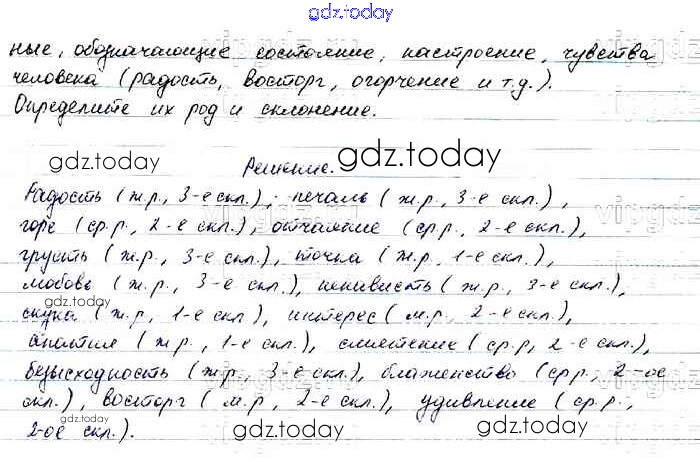 gdz.today
ные, обозначающие состояние, настроение, чувства
человека (радость, восторг, огорчение и т.д.).
Определите их род и склонение.
gdz.today Решение. gdz.today
Радость (ж.р., 3-е скл.), печаль (ж.р., 3-е скл.),
горе (ср.р., 2-е скл.), отчаяние (ср.р., 2-е скл.),
грусть (ж.р., 3-е скл.), тоска (ж.р., 1-е скл.),
любовь (ж.р., 3-е скл.), ненависть (ж.р., 3-е скл.),
gdz.today
скука (ж.р., 1-е скл.), интерес (м.р., 2-е скл.),
апатия (ж.р., 1-е скл.), смятение (ср.р., 2-е скл.),
безысходность (ж.р., 3-е скл.), блаженство (ср.р., 2-ое
скл.), восторг (м.р., 2-е скл.), удивление (ср.р.,
2-ое скл.). gdz.today gdz.today